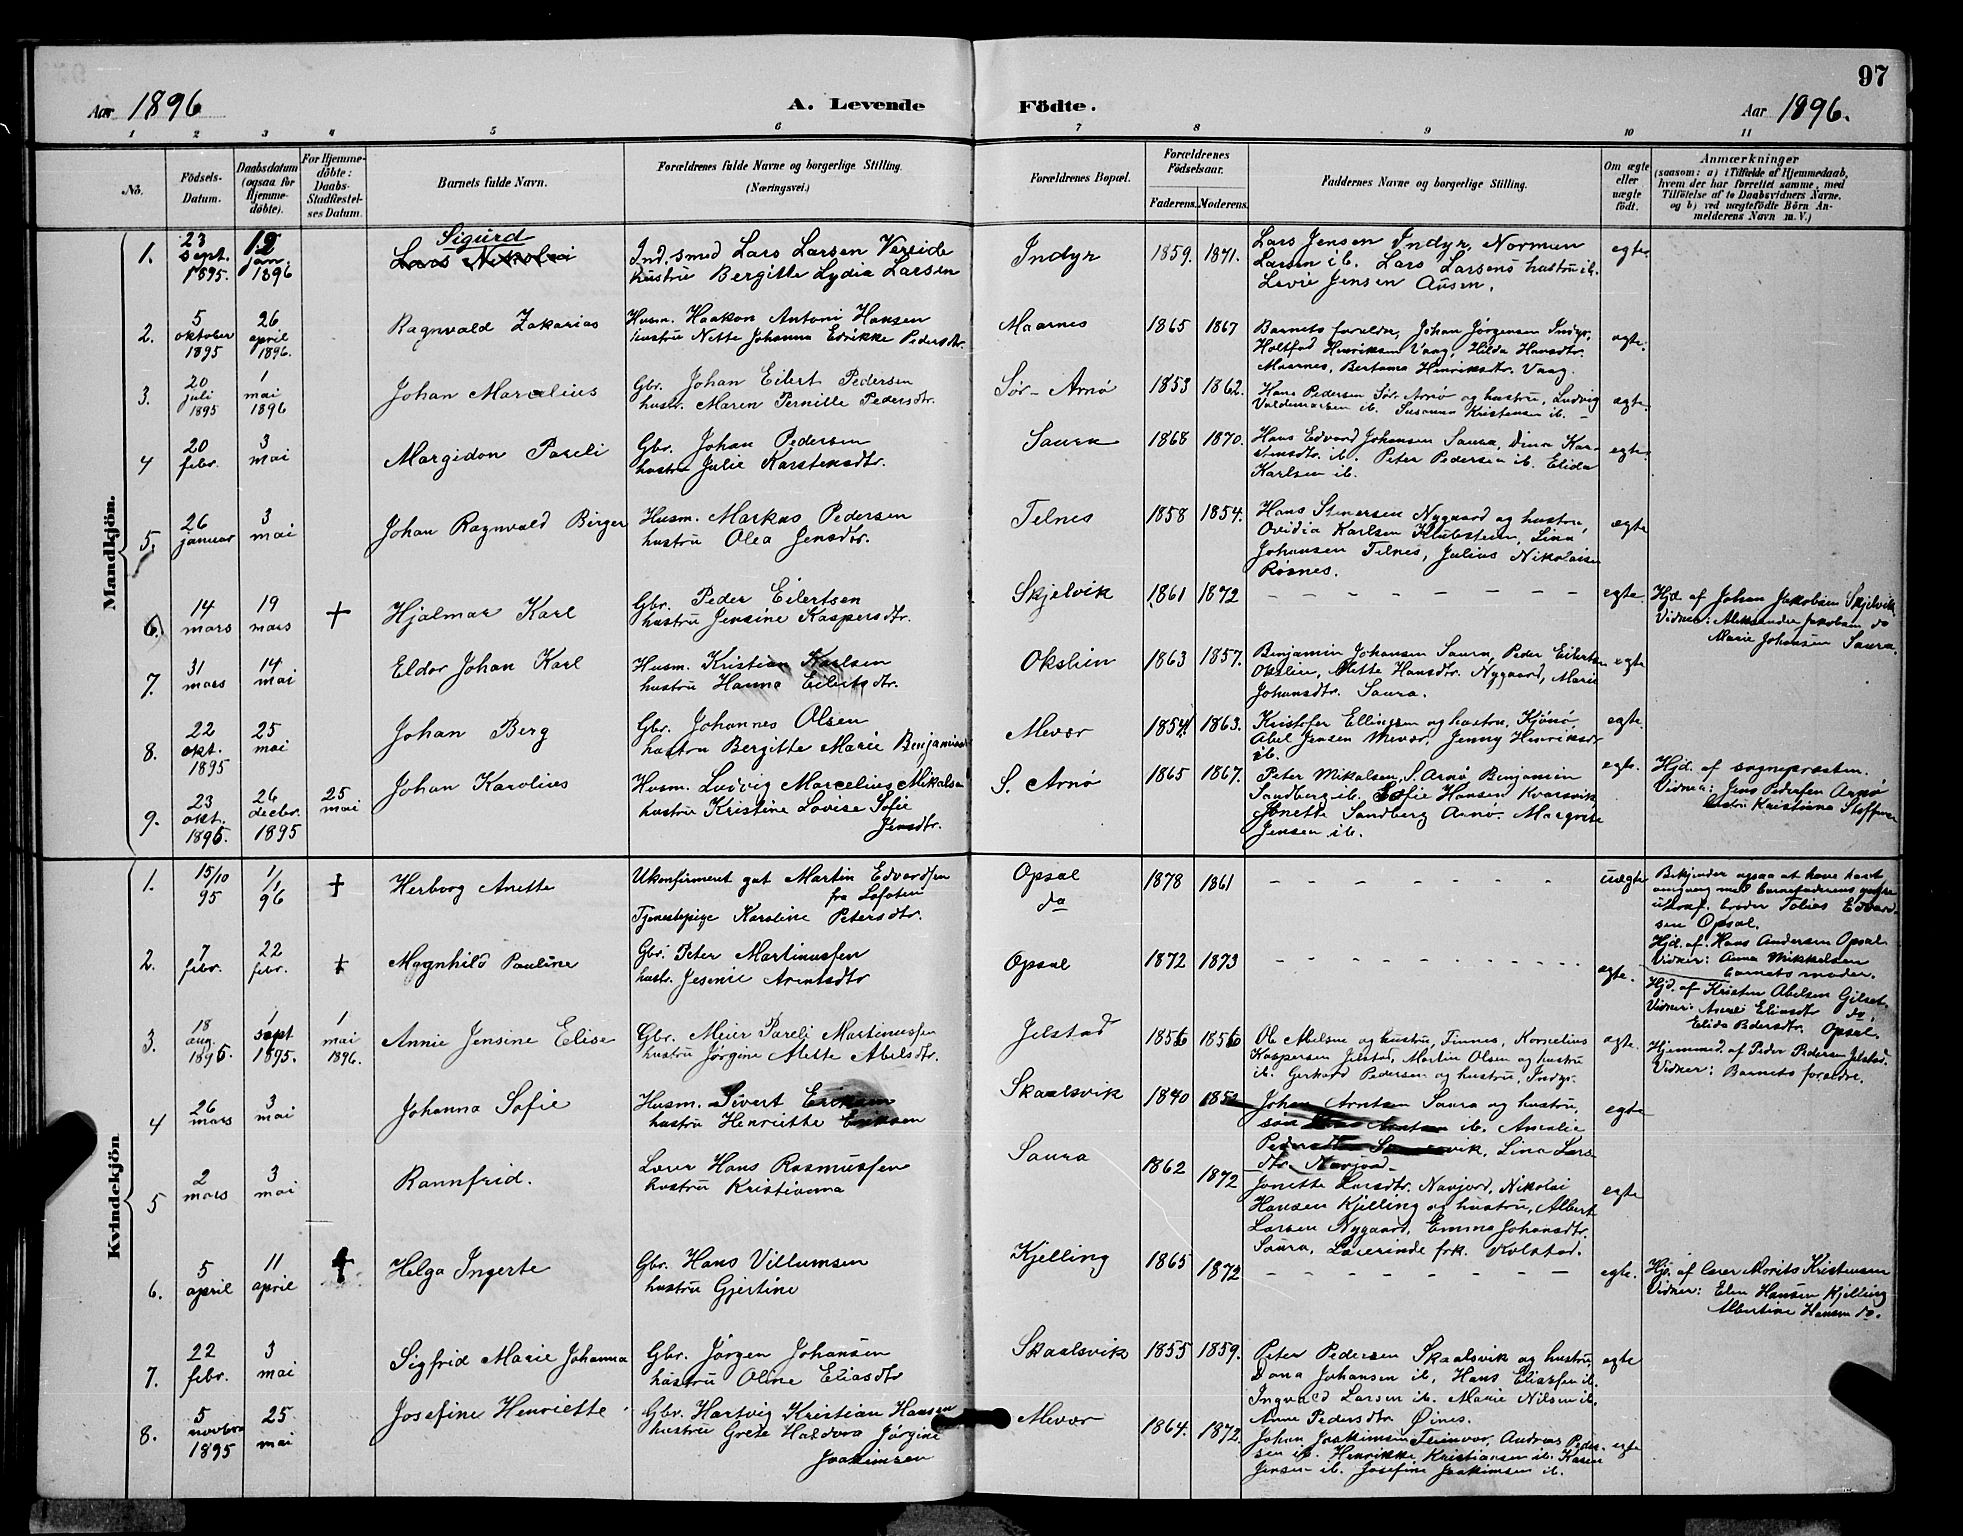 97
Aar 1896
A. Levende Födte.
Aar 1896.
1 2 3 4 5 6 7 8 9 10 11
No.
Födsels-Datum.
Daabsdatum (ogsaa for Hjemme-döbte).
For Hjemme-döbte: Daabs-Stadfæstel-ses Datum.
Barnets fulde Navn.
Forældrenes fulde Navne og borgerlige Stilling.
(Næringsvei.)
Forældrenes Bopæl.
Forældrenes Födselsaar.
Faderens. Moderens.
Faddernes Navne og borgerlige Stilling.
Om ægte eller uægte födt.
Anmærkninger
(saasom: a) i Tilfælde af Hjemmedaab,
hvem der har forrettet samme, med
Tilföielse af to Daabsvidners Navne,
og b) ved uægtefödte Börn An-
melderens Navn m. V.)
Mandkjön.
1. 23 sept. 1895. 12 jan. 1896
Sigurd
Lars Nikolai
Ind. smed Lars Larsen Verside
hustru Bergitte Lydia Larsen
Indyr 1859. 1871.
Lars Jensen Indyr, Norman
Larsen ib. Lars Larsens hustru ib.
Lovie Jensen Ausen.
egte
2. 5 oktober 1895 26 april 1896.
Ragnvald Zakarias
Husm. Haakon Antoni Hansen
hustru Nette Johanna Edrikke Pedersdtr.
Maarnes 1865 1867
Barnets foreldre, Johan Jørgensen Indyr,
Holtfod Henriksen Vaag, Hilda Hansdtr.
Maarnes, Bertama Henriksdtr. Vaag.
egte.
3. 20 juli 1895 1 mai 1896
Johan Marcelius
Gbr. Johan Eilert Pedersen
hustr. Maren Pernille Pedersdtr.
Sør-Arnø 1853 1862.
Hans Pedersen Sør-Arnø og hustru, Ludvig
Valdemarsen ib. Susanna Kristensen ib.
egte.
4 20 febr. 3 mai
Margidon Pareli
Gbr. Johan Pedersen
hustru Julie Karstensdtr.
Saura 1868 1870.
Hans Edvard Johansen Saura, Dina Kar-
stensdtr. ib. Peter Pedersen ib. Elida
Karlsen ib.
egte.
5. 26 januar 3 mai
Johan Ragnvald Birger
Husm. Markus Pedersen
hustru Olea Jensdtr.
Telnes 1858 1854.
Hans Stenersen Nygaard og hustru,
Ovidia Karlsen Klubsteen, Lina
Johansen Telnes, Julius Nikolaisen
Røsnes.
egte
6. 14 mars 19 mars †
Hjalmar Karl
Gbr. Peder Eilertsen
hustru Jensine Kaspersdtr.
Skjelvik 1861 1872
egte.
Hjd. af Johan Jakobsen Skjelvik
Vidner: Aleksander Jakobsen do
Marie Johansen Saura.
7. 31 mars 14 mai
Eldor Johan Karl
Husm. Kristian Karlsen
hustru Hanna Eilertsdtr.
Okslien 1863 1857.
Benjamin Johansen Saura, Peder Eilertsen
Okslien, Mette Hansdtr. Nygaard, Marie
Johansdtr. Saura.
egte
8. 22 okt. 1895 25 mai
Johan Berg
Gbr. Johannes Olsen
hustru Bergitte Marie Benjaminsd
Mevær 1854 1863.
Kristofer Ellingsen og hustru, Kjønø,
Abel Jensen Mevær, Jenny Henriksdr
ib.
egte.
9. 23 okt. 1895. 26 decbr. 1895 25 mai
Johan Karolius
Husm. Ludvig Marcelius Mikalsen
hustru Kristine Lovise Sofie
Jensdtr.
S. Arnø 1865 1867.
Peter Mikalsen, S. Arnø Benjamin
Sandberg ib. Sofie Hansen Kvarsvik,
Jonette Sandberg Arnø. Margrete
Jensen ib.
egte.
Hjd. af sognepræsten.
Vidner: Jens Pedersen Arnø
hustru Kristiana Stoffersen
Kvindekjön
1. 15/10 95 1/1 96 †
Herborg Anette
Ukonfirmert gut Martin Edvardsen
fra Lofoten
Tjenestepige Karoline Petersdtr.
Opsal
do
1878 1861
uægte
Bekjender ogsaa at have havt
omgang med barnefaderens yngre
ukonf. broder Tobias Edvard-
sen Opsal.
Hjd. af Hans Andersen Opsal.
Vidner: Anna Mikkelsen
barnets moder.
2. 7 febr. 22 febr. †
Magnhild Pauline
Gbr. Peter Martinussen
hustr. Jesenie Arntsdtr
Opsal 1872 1873
egte.
Hjd. af Kristen Abelsen Gilset
Vidner: Anne Eliasdtr do,
Elida Pedersdtr. Opsal.
3. 18 aug. 1895. 1 sept 1895. 1 mai 1896.
Annie Jensine Elise
Gbr. Meier Pareli Martinussen
hustru Jørgine Mette Abelsdtr.
Jelstad 1856 1856
Ole Abelsen og hustru, Finnes, Kornelius
Kaspersen Jelstad, Martin Olsen og hustru
ib. Gerhard Pedersen og hustru, Indyr.
egte.
Hjemmed. af Peder Pedersen Jelstad.
Vidner: Barnets foreldre.
4 26 mars 3 mai
Johanna Sofie
Husm. Sivert Eriksen
hustru Henriette Eriksen
Skaalsvik 1840
Johan Arntsen Saura og hustru,
ib. Amalie
Lina Lars-
dtr. Navjord.
egte
5 2 mars 3 mai
Rannfrid.
Lærer Hans Rasmussen
hustru Kristianna
Saura 1862 1872
Jonette Larsdtr. Navjord, Nikolai
Hansen Kjelling og hustru, Albert
Larsen Nygaard, Emma Johansdtr.
Saura, Lærerinde frk. Kolstad.
egte
6. 5 april 11 april †
Helga Ingerte
Gbr. Hans Villumsen
hustru Gjertine
Kjelling 1865 1872
egte.
Hjd. af lærer Morits Kristensen
Vidner: Elen Hansen Kjelling
Albertine Hansen do.
7. 22 febr. 3 mai
Sigfrid Marie Johanna
Gbr. Jørgen Johansen
hustru Oline Eliasdtr
Skaalsvik 1855 1859.
Peter Pedersen Skaalsvik og hustru,
Dona Johansen ib, Hans Eliassen ib.
Ingvald Larsen ib. Marie Nilsen ib.
Anne Pedersdtr. Øines.
egte
8. 5 novbr 1895 25 mai
Josefine Henriette
Gbr. Hartvig Kristian Hansen
hustru Grete Haldora Jørgine
Joakimsen
Mevær 1864. 1872.
Johan Joakimsen Teinvær, Andreas Peder-
sen ib. Henrikke Kristiansen ib. Karen
Jensen ib. Josefine Joakimsen ib.
egte